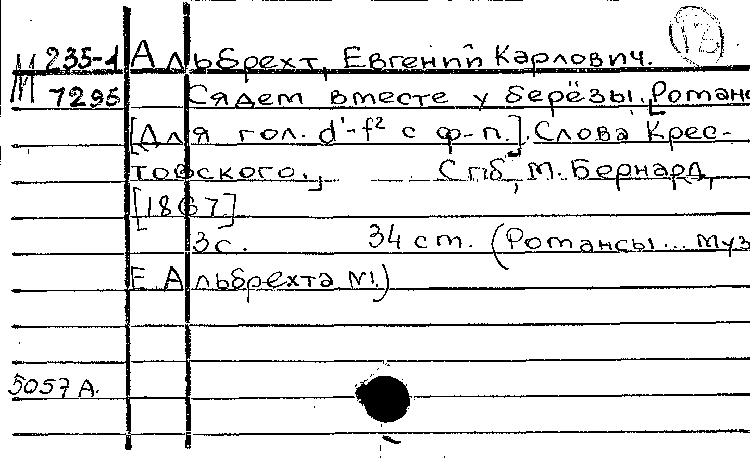 М 235-1 Альбрехт, Евгений Карлович.
7295 Сядем вместе у берёзы. Романс
[Для гол. d¹-f² с ф-п.]. Слова Крес-
товского., Спб, М. Бернард,
[1867]
3с. 34 ст. (Романсы... муз
Е Альбрехта №1.)
5057 А.